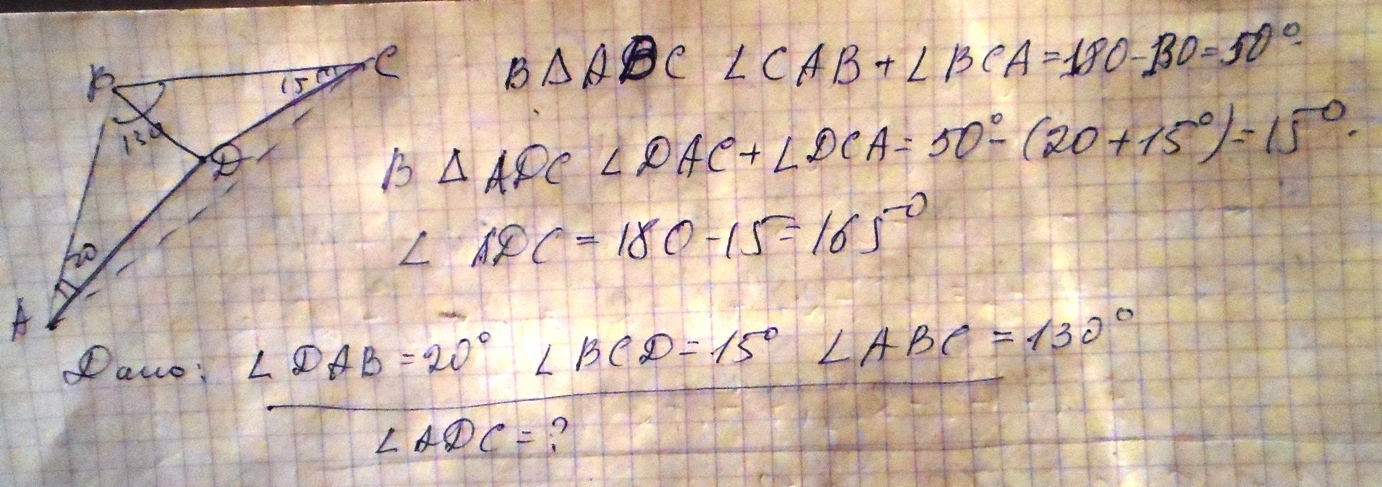 B C 15 130 D 20 A
В Δ ABC ∠CAB + ∠BCA = 180 - 130 = 50°.
В Δ ADC ∠DAC + ∠DCA = 50° - (20 + 15°) = 15°.
∠ ADC = 180 - 15 = 165°
Дано: ∠DAB = 20° ∠BCD = 15° ∠ABC = 130°
∠ADC = ?